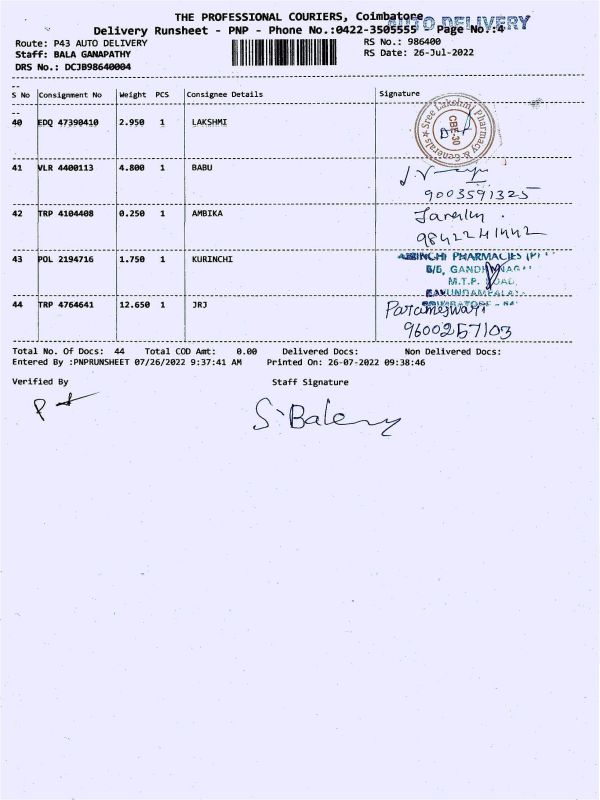 THE PROFESSIONAL COURIERS, Coimbatore
AUTO DELIVERY
Delivery Runsheet - PNP - Phone No.:0422-3505555 Page No.:4
Route: P43 AUTO DELIVERY RS No.: 986400
Staff: BALA GANAPATHY RS Date: 26-Jul-2022
DRS No.: DCJB98640004
S No Consignment No Weight PCS Consignee Details Signature
40 EDQ 47390410 2.950 1 LAKSHMI
Sree Lakshmi Pharmacy & Generals
CBE-30
41 VLR 4400113 4.800 1 BABU
9003591325
42 TRP 4104408 0.250 1 AMBIKA
43 POL 2194716 1.750 1 KURINCHI
PHARMACIES
M.T.P.
44 TRP 4764641 12.650 1 JRJ
Parameswari
9600257103
Total No. Of Docs: 44 Total COD Amt: 0.00 Delivered Docs: Non Delivered Docs:
Entered By :PNPRUNSHEET 07/26/2022 9:37:41 AM Printed On: 26-07-2022 09:38:46
Verified By Staff Signature